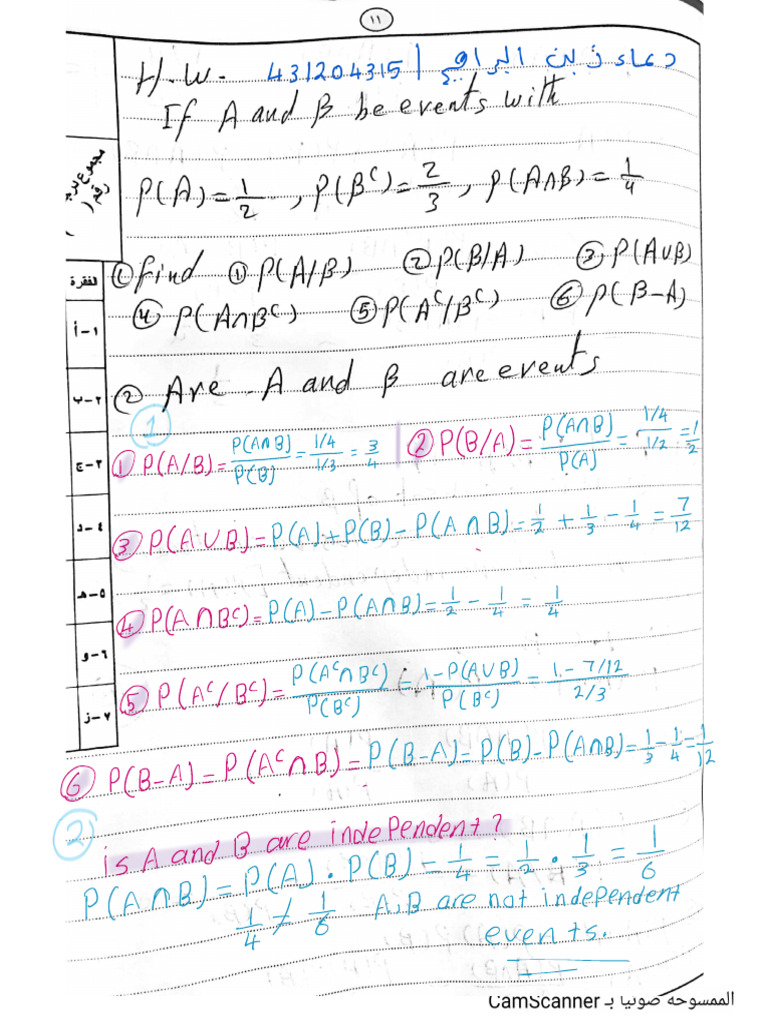 ١١
H.W. 431204315 | دعاء زبن البراقي
If A and B be events with
P(A)=1/2 , P(Bᶜ)=2/3 , P(A∩B)=1/4
① find ① P(A/B) ② P(B/A) ③ P(A∪B)
④ P(A∩Bᶜ) ⑤ P(Aᶜ/Bᶜ) ⑥ P(B-A)
② Are A and B are events
الفقرة
١-أ
٢-ب
٣-ج
٤-د
٥-هـ
٦-و
٧-ز
①
① P(A/B)=P(A∩B)/P(B)=(1/4)/(1/3)=3/4
② P(B/A)=P(A∩B)/P(A)=(1/4)/(1/2)=1/2
③ P(A∪B)=P(A)+P(B)-P(A∩B)=1/2+1/3-1/4=7/12
④ P(A∩Bᶜ)=P(A)-P(A∩B)=1/2-1/4=1/4
⑤ P(Aᶜ/Bᶜ)=P(Aᶜ∩Bᶜ)/P(Bᶜ)=1-P(A∪B)/P(Bᶜ)=1-7/12/2/3
⑥ P(B-A)=P(Aᶜ∩B)=P(B-A)=P(B)-P(A∩B)=1/3-1/4=1/12
②
is A and B are independent?
P(A∩B)=P(A).P(B)-1/4=1/2.1/3=1/6
1/4≠1/6 A,B are not independent
events.
الممسوحة ضوئيا بـ CamScanner